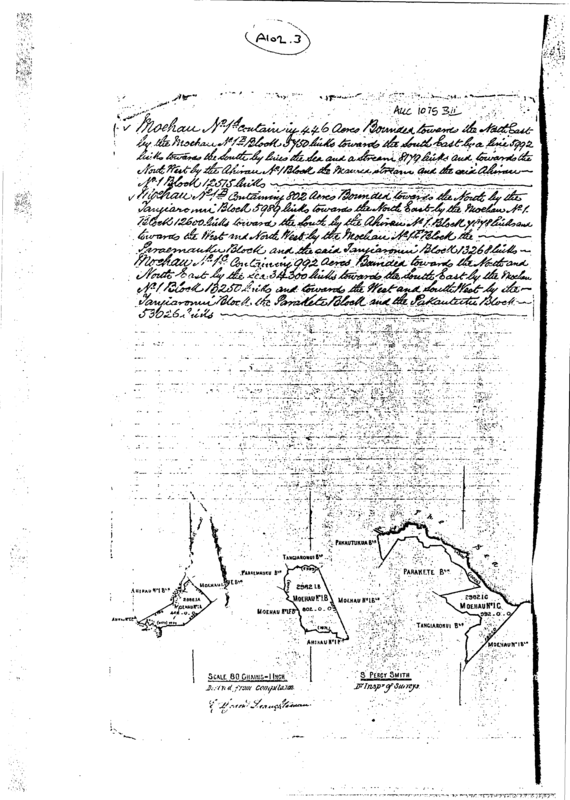 A102.3
AUC 1075
Moehau No 1A containing 446 Acres Bounded towards the North East
by the Moehau No 1 Block 3750 links towards the South East by a line 5892
links towards the South by lines the sea and a stream 8179 links and towards the
North West by the Ahirau No 1 Block the stream and the said Ahirau
No 1 Block 12515 links
Moehau No 1B Containing 802 Acres Bounded towards the North by the
Tangiaronui Block 5989 links towards the North East by the Moehau No 1
Block 12600 links toward the South by the Ahirau No 1 Block links and
towards the West and North West by the Moehau Block the
Block and the said Tangiaronui Block 13268 links
Moehau No 1C Containing 992 Acres Bounded towards the North and
North East by the sea 34300 links towards the South East by the Moehau
No 1 Block 18250 links and towards the West and South West by the
Tangiaronui Block the Parakete Block and the Pukaututu Block
53026 links
TANGIARONUI Bk
AHIRAU No 1 Bk
MOEHAU No 1A
2982 1B
MOEHAU No 1B
802.0.0
MOEHAU No 1 Bk
AHIRAU No 1
PARAKETE Bk
2982 1C
MOEHAU No 1C
992.0.0
TANGIARONUI Bk
MOEHAU No 1 Bk
SCALE 80 CHAINS = 1 INCH
from Compilation
Draughtsman
S PERCY SMITH
Insp of Surveys